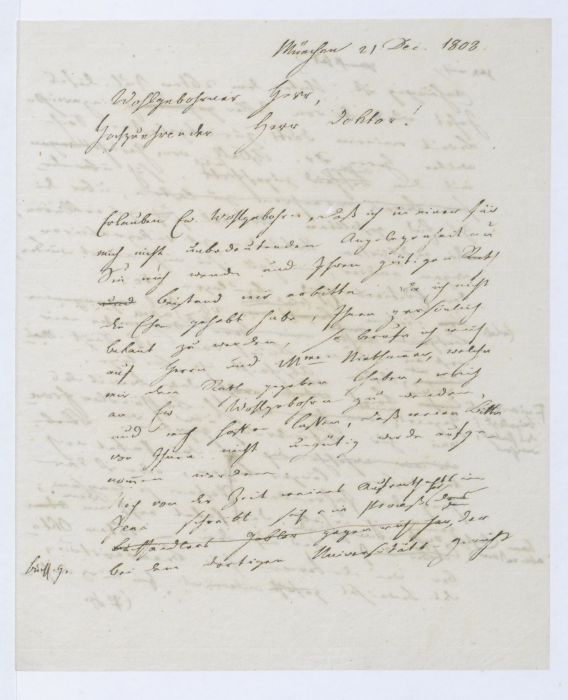 München 21 Dec. 1808
Wohlgebohrner Herr,
Hochzuehrender Herr Doktor!
Erlauben Ew. Wohlgebohrn, daß ich in einer für
mich nicht unbedeutenden Angelegenheit an
Sie mich wende und Ihren gütigen Rath
und Beistand mir erbitte. Da ich nicht
die Ehre gehabt habe, Ihnen persönlich
bekant zu werden, so berufe ich mich
auf Herrn und Mme Niethammer, welche
mir den Rath gegeben haben, mich
an Ew Wohlgebohrn zu wenden,
und mich hoffen lassen, daß meine Bitte
von Ihnen nicht ungütig werde aufge-
nommen werden.
Noch von der Zeit meines Aufenthalts in
Jena schreibt sich ein Proceß des
Buchhändlers Gabler gegen mich her, der
bei dem dortigen Universitäts Gericht